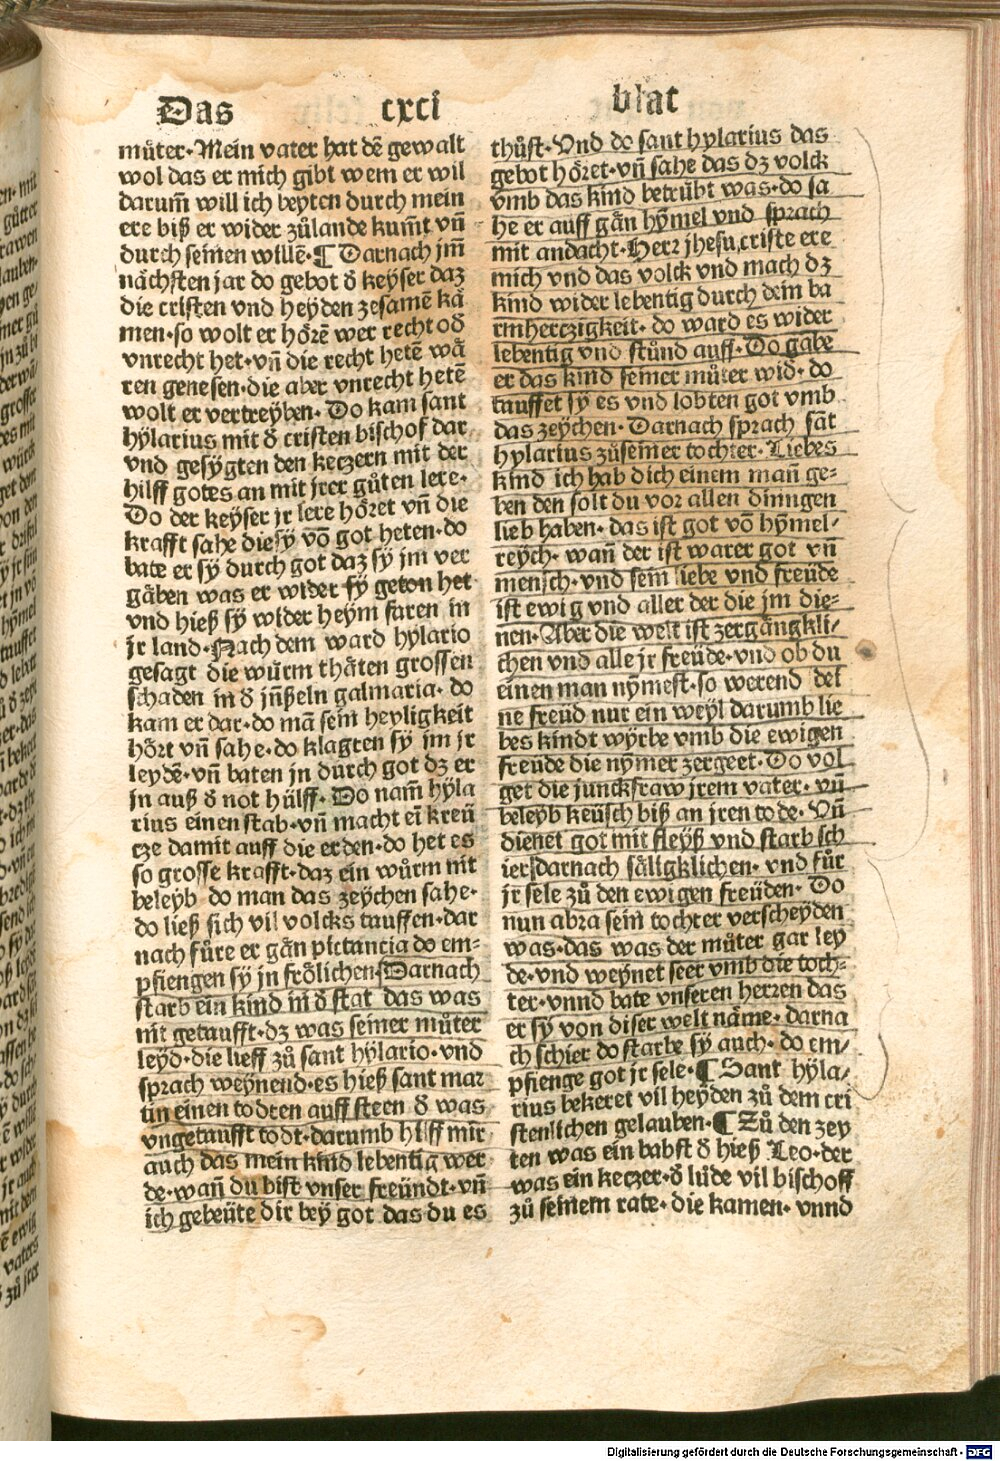 Das cxci blat
můter·Mein vater hat dẽ gewalt
wol das er mich gibt wem er wil
darum̃ will ich beyten durch mein
ere biß er wider zůlande kum̃t vñ
durch seinen willẽ·¶ Darnach jm̃
nächsten jar do gebot ð keyser daz
die cristen vnd heyden zesamẽ kä
men·so wolt er hörẽ wer recht oð
vnrecht het·vñ die recht hetẽ wä
ren genesen·die aber vnrecht hetẽ
wolt er vertreyben· Do kam sant
hylarius mit ð cristen bischof dar
vnd gesygten den keczern mit der
hilff gotes an mit jrer gůten lere·
Do der keyser jr lere höret vñ die
krafft sahe die sy võ got heten·do
bate er sy durch got daz sy jm ver
gäben was er wider sy geton het
vnd hieß sy wider heym faren in
jr land·Nach dem ward hylario
gesagt die würm thäten grossen
schaden in ð jnßeln galmaria· do
kam er dar·do mã sein heyligkeit
hört vñ sahe·do klagten sy jm jr
leydẽ·vñ baten jn durch got dz er
jn auß ð not hülff· Do nam̃ hyla
rius einen stab·vñ macht eĩ kreü
cze damit auff die erden·do het es
so grosse krafft·daz ein würm nit
beleyb do man das zeychen sahe·
do ließ sich vil volcks tauffen·dar
nach fůre er gän pictancia do em⸗
pfiengen sy jn frölichen·Darnach
starb ein kind in ð stat das was
nit getaufft·dz was seiner můter
leyd·die lieff zů sant hylario·vnd
sprach weynend·es hieß sant mar
tin einen todten auff steen ð was
vngetaufft todt·darumb hilff mir
auch das mein kind lebentig wer
de·wañ du bist vnser freündt·vñ
ich gebeüte dir bey got das du es
thůst·Vnd do sant hylarius das
gebot höret·vñ sahe das dz volck
vmb das kind betrübt was·do sa
he er auff gän hymel vnd sprach
mit andacht·Herr jhesu criste ere
mich vnd das volck vnd mach dz
kind wider lebentig durch dein ba
rmherczigkeit· do ward es wider
lebentig vnd stůnd auff·Do gabe
er das kind seiner můter wid·do
tauffet sy es vnd lobten got vmb
das zeychen· Darnach sprach sãt
hylarius zů seiner tochter·Liebes
kind ich hab dich einem mañ ge⸗
ben den solt du vor allen dinngen
lieb haben·das ist got võ hymel/
reych· wañ der ist warer got vñ
mensch·vnd sein liebe vnd freüde
ist ewig vnd aller der die jm die⸗
nen·Aber die welt ist zergängkli/
chen vnd alle jr freüde·vnd ob du
einen man nymest·so werend dei
ne freüd nur ein weyl darumb lie
bes kindt wyrbe vmb die ewigen
freüde die nymer zergeet·Do vol
get die junckfraw jrem vater· vñ
beleyb keüsch biß an jren tode· Vñ
dienet got mit fleyß vnd starb sch
ier darnach säligklichen· vnd fůr
jr sele zů den ewigen freüden· Do
nun abra sein tochter verscheyden
was·das was der můter gar ley
de·vnd weynet seer vmb die toch⸗
ter·vnnd bate vnseren herren das
er sy von diser welt näme·darna
ch schier do starbe sy auch· do em/
pfienge got jr sele·¶ Sant hyla/
rius bekeret vil heyden zů dem cri
stenlichen gelauben·¶ Zů den zey
ten was ein babst ð hieß Leo·der
was ein keczer·ð lůde vil bischoff
zů seinem rate·die kamen·vnnd
Digitalisierung gefördert durch die Deutsche Forschungsgemeinschaft - DFG